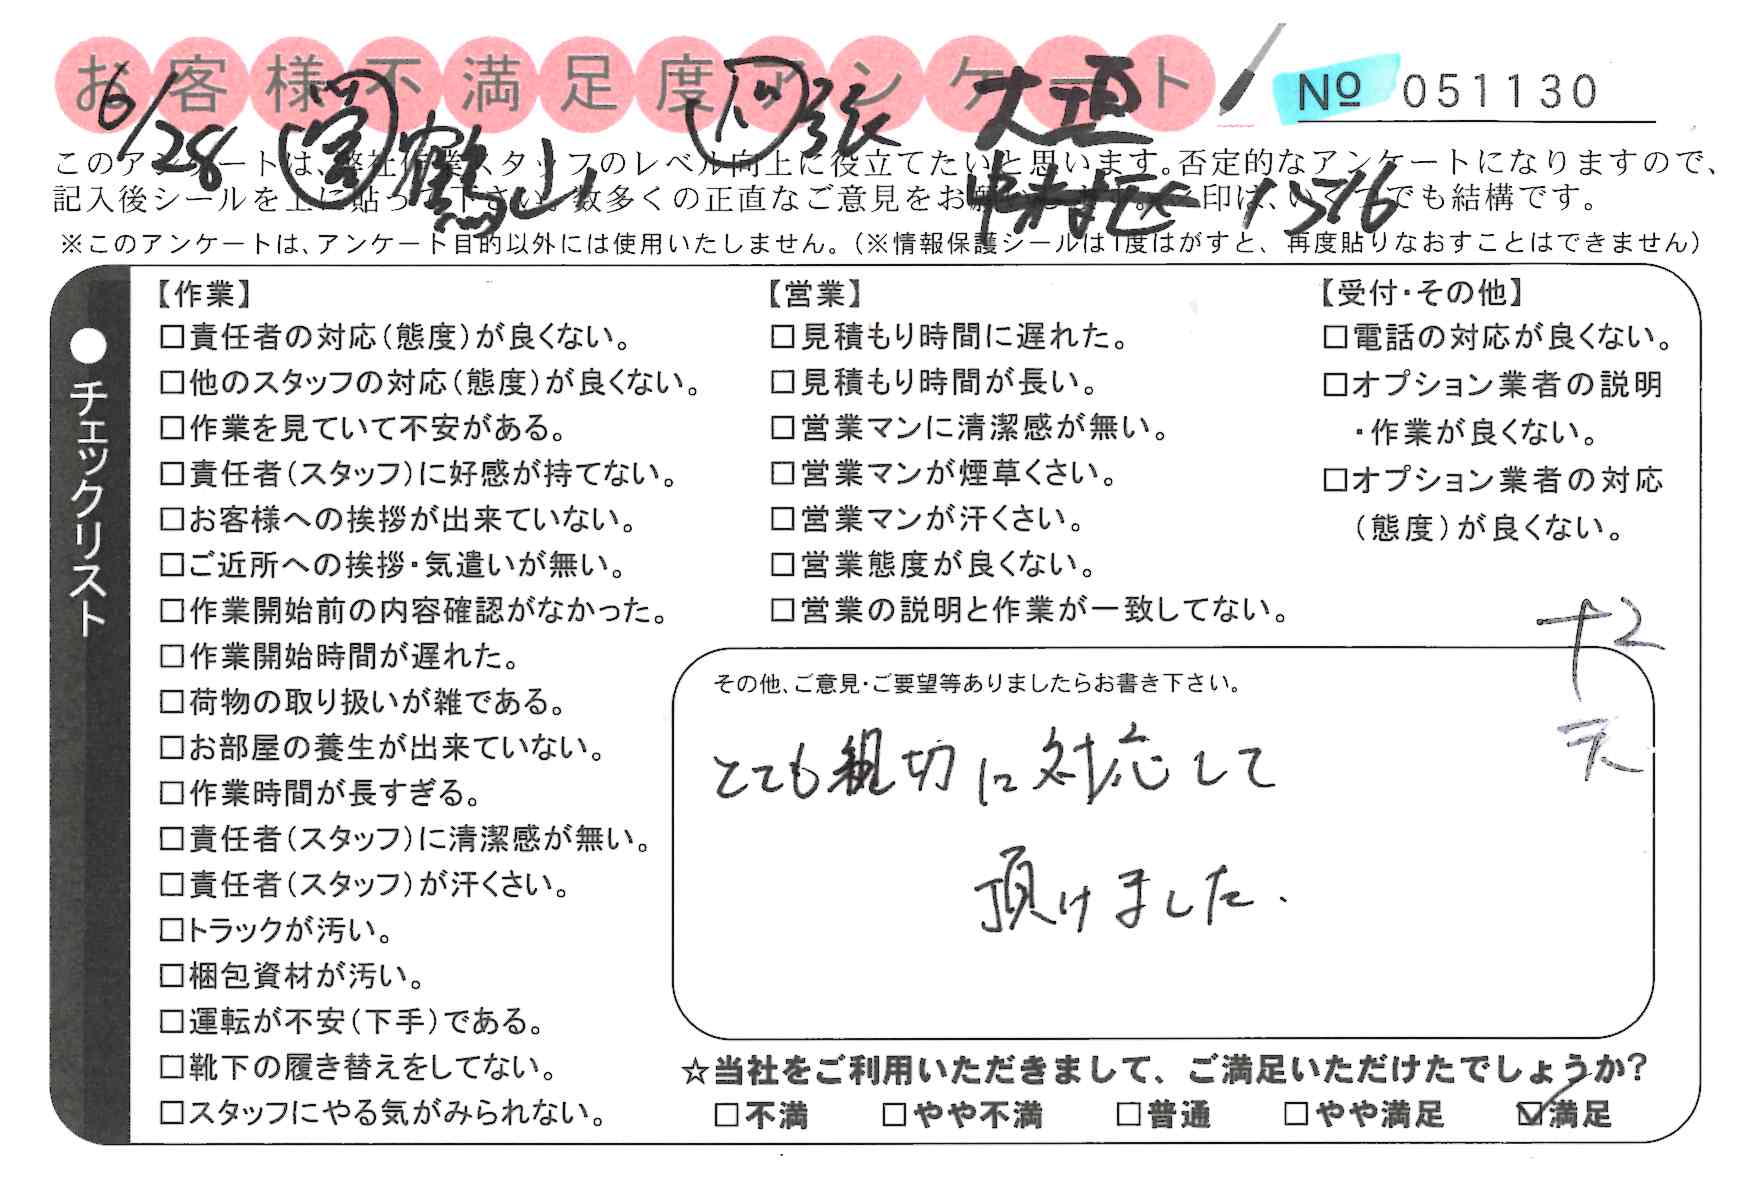 お客様不満足度アンケート
№ 051130
6/28 営 鶴山 張 大 1376
このアンケートは、弊社作業スタッフのレベル向上に役立てたいと思います。否定的なアンケートになりますので、
記入後シールを上に貼って下さい。数多くの正直なご意見をお願いします。※印は、いくつでも結構です。
※このアンケートは、アンケート目的以外には使用いたしません。(※情報保護シールは1度はがすと、再度貼りなおすことはできません)
●チェックリスト
【作業】
□責任者の対応(態度)が良くない。
□他のスタッフの対応(態度)が良くない。
□作業を見ていて不安がある。
□責任者(スタッフ)に好感が持てない。
□お客様への挨拶が出来ていない。
□ご近所への挨拶・気遣いが無い。
□作業開始前の内容確認がなかった。
□作業開始時間が遅れた。
□荷物の取り扱いが雑である。
□お部屋の養生が出来ていない。
□作業時間が長すぎる。
□責任者(スタッフ)に清潔感が無い。
□責任者(スタッフ)が汗くさい。
□トラックが汚い。
□梱包資材が汚い。
□運転が不安(下手)である。
□靴下の履き替えをしてない。
□スタッフにやる気がみられない。
【営業】
□見積もり時間に遅れた。
□見積もり時間が長い。
□営業マンに清潔感が無い。
□営業マンが煙草くさい。
□営業マンが汗くさい。
□営業態度が良くない。
□営業の説明と作業が一致してない。
【受付・その他】
□電話の対応が良くない。
□オプション業者の説明
・作業が良くない。
□オプション業者の対応
(態度)が良くない。
+2
その他、ご意見・ご要望等ありましたらお書き下さい。
とても親切に対応して
頂けました.
☆当社をご利用いただきまして、ご満足いただけたでしょうか?
□不満 □やや不満 □普通 □やや満足 ☑満足